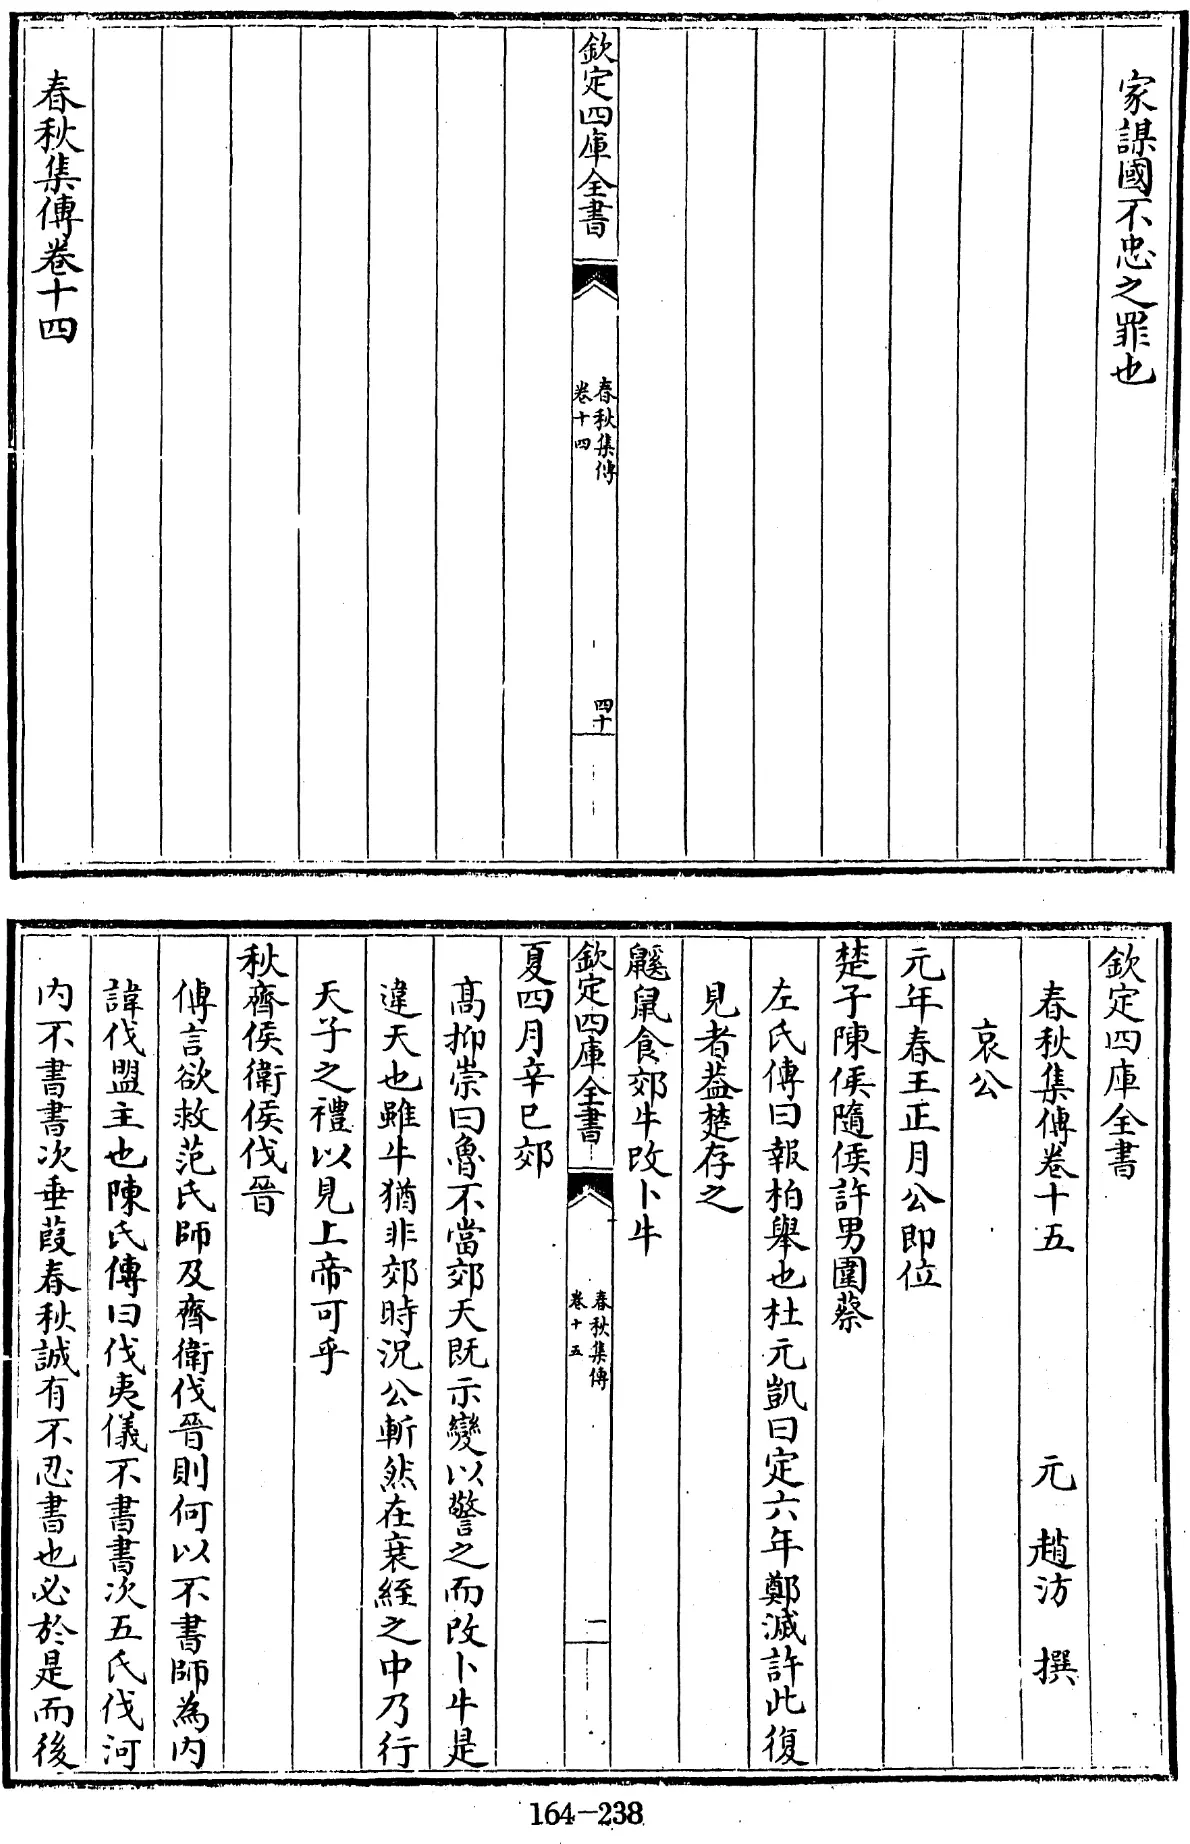 家謀國不忠之罪也
欽定四庫全書
春秋集傳
卷十四
四十
春秋集傳卷十四
欽定四庫全書
春秋集傳卷十五
元 趙汸 撰
哀公
元年春王正月公即位
楚子陳侯隨侯許男圍蔡
左氏傳曰報柏舉也杜元凱曰定六年鄭滅許此復
見者葢楚存之
鼷鼠食郊牛改卜牛
欽定四庫全書
春秋集傳
卷十五
一
夏四月辛巳郊
髙抑崇曰魯不當郊天既示變以警之而改卜牛是
違天也雖牛猶非郊時況公斬然在衰絰之中乃行
天子之禮以見上帝可乎
秋齊侯衛侯伐晉
傳言欲救范氏師及齊衛伐晉則何以不書師為内
諱伐盟主也陳氏傳曰伐夷儀不書書次五氏伐河
内不書書次垂葭春秋誠有不忍書也必於是而後
164-238